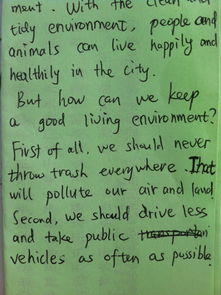 ment. With the clean and
tidy environment, people and
animals can live happily and
healthily in the city.
But how can we keep
a good living environment?
First of all, we should never
throw trash everywhere. That
will pollute our air and land.
Second, we should drive less
and take public
vehicles as often as possible.